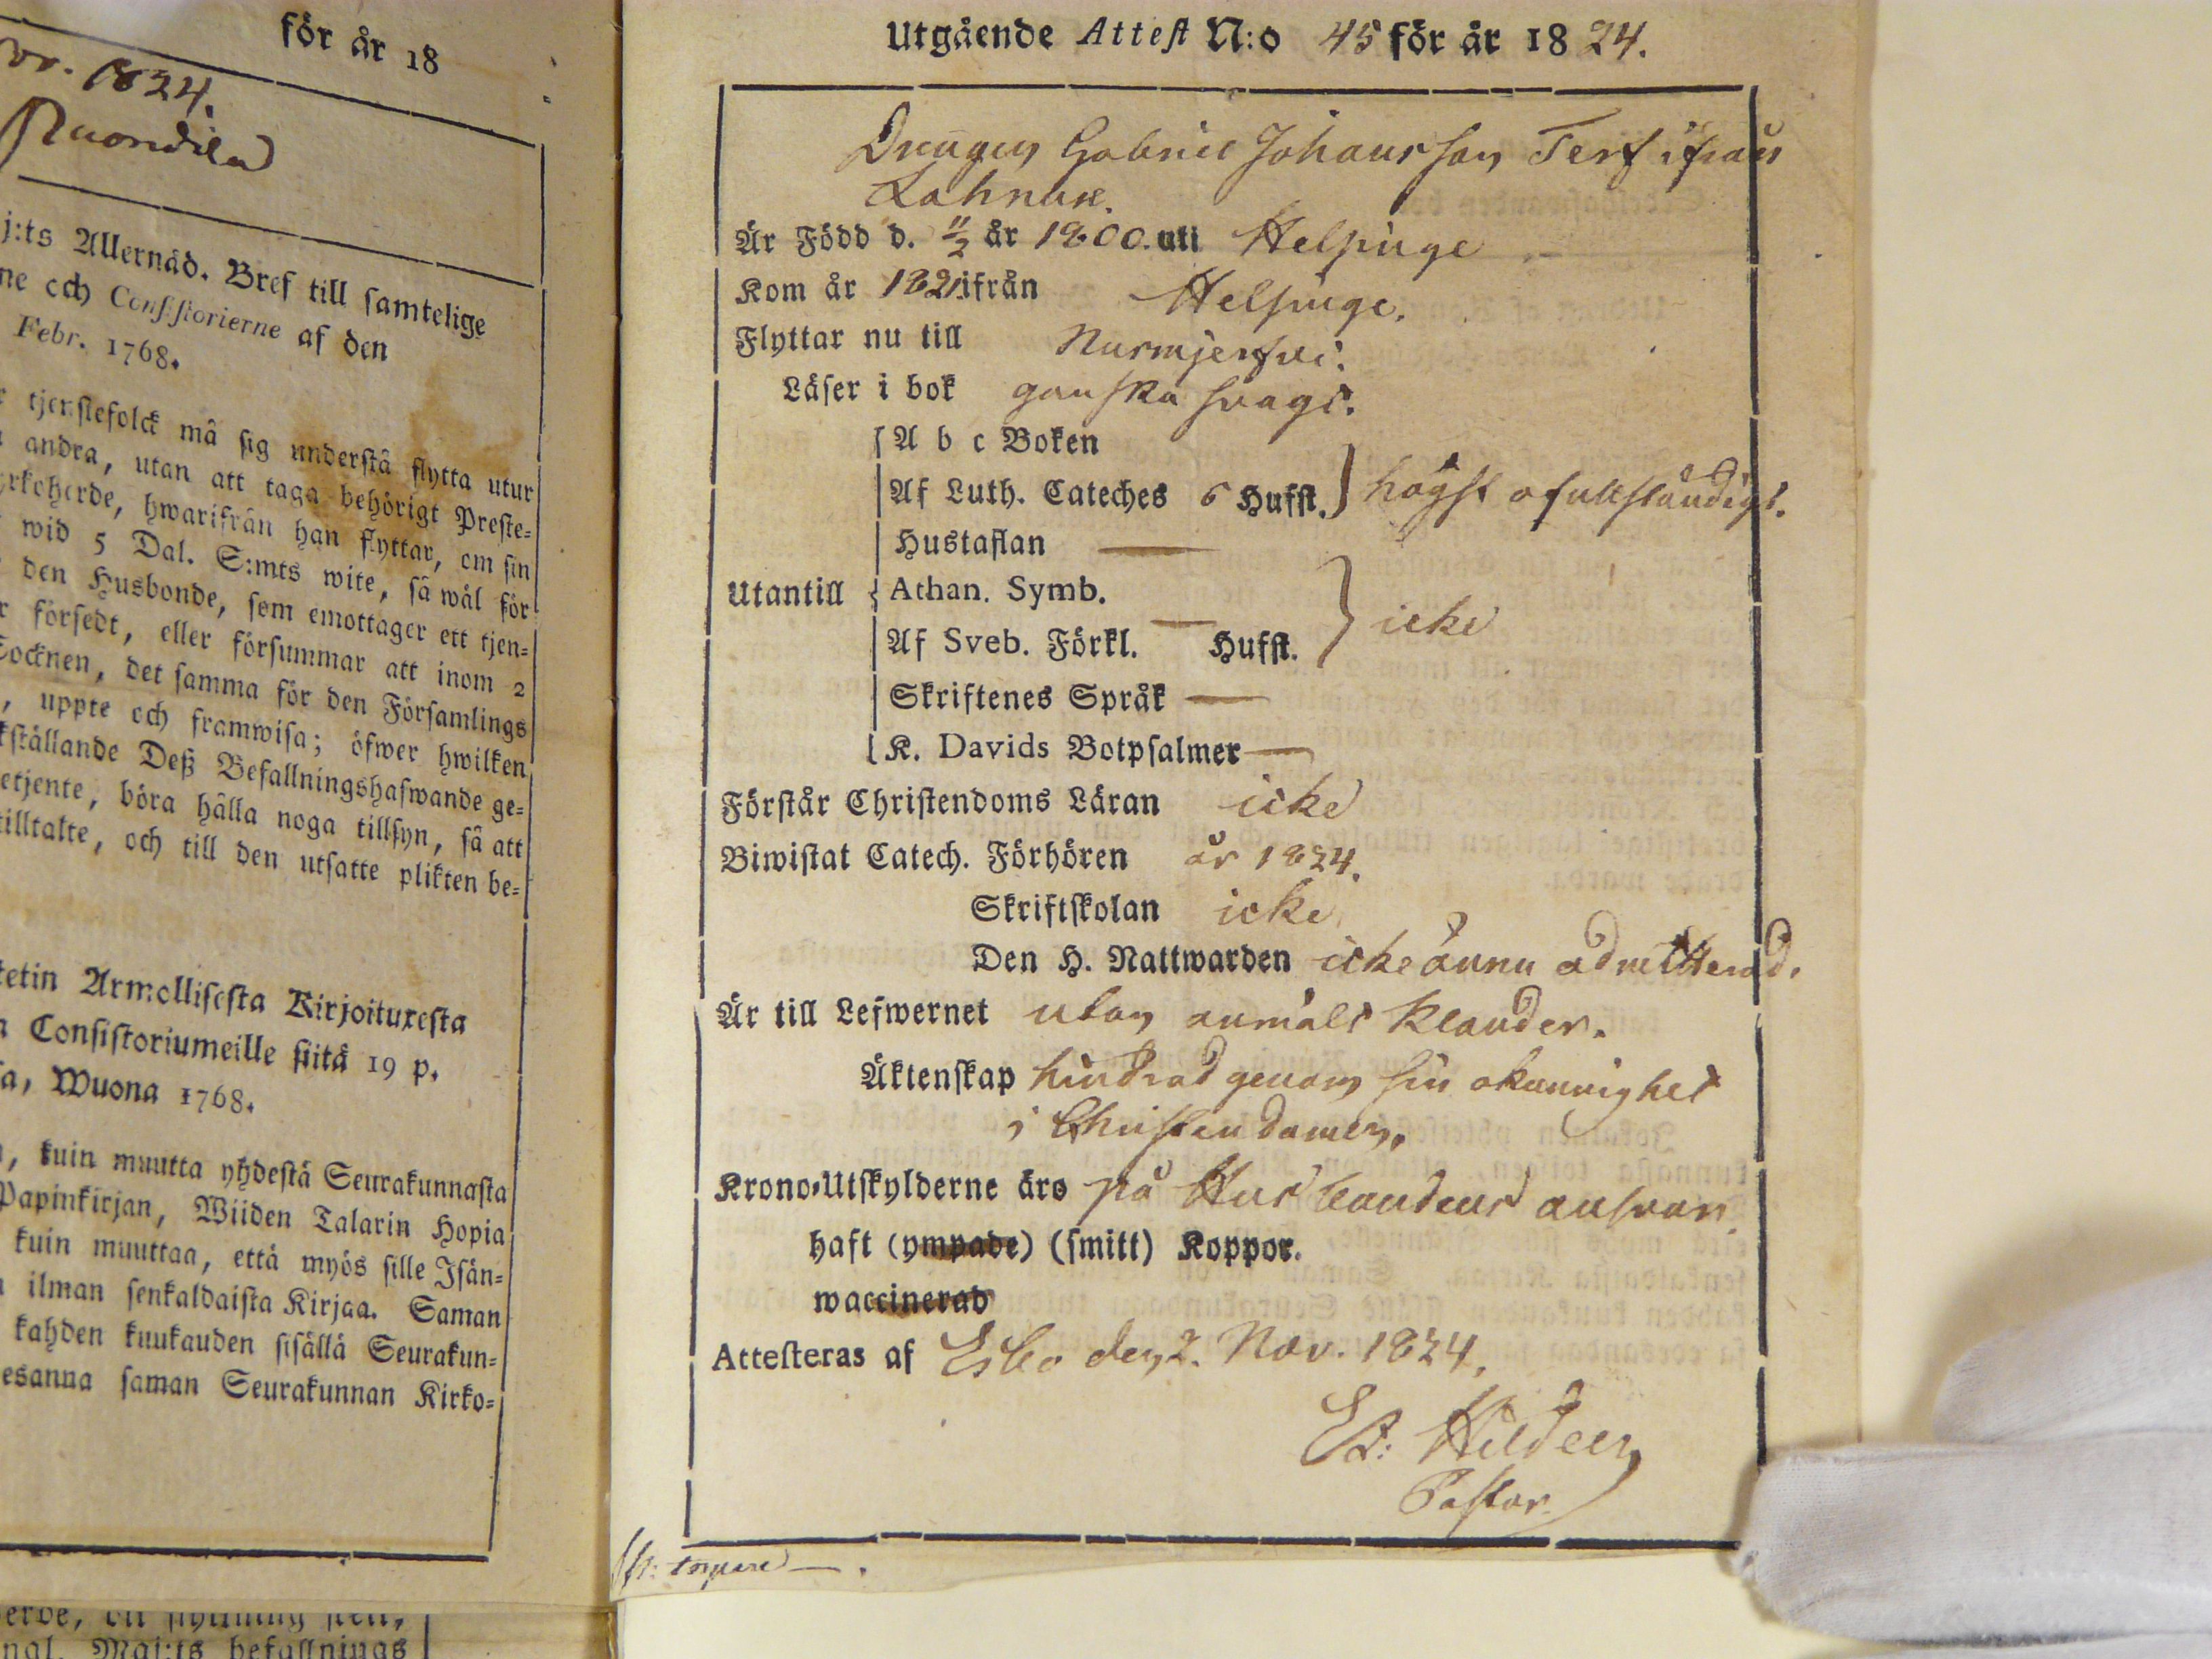 för år 18
1824.
j:ts Allernåd. Bref till samtelige
ne och Consistorierne af den
Febr. 1768.
tjenstefolck må sig understå flytta utur
andra, utan att taga behörigt Preste-
rkoherde, hwarifrån han flyttar, om sin
wid 5 Dal. S:mts wite, så wäl för
den Husbonde, som emottager ett tjen-
försedt, eller försummar att inom 2
Socknen, det samma för den Församlings
, uppte och framwisa; öfwer hwilken
kställande Deß Befallningshafwande ge-
etjente, böra hålla noga tillsyn, så att
tilltalte, och till den utsatte plikten be-
tetin Armollisesta Kirjoituxesta
Consistoriumeille siitä 19 p.
sa, Wuona 1768.
, kuin muutta yhdestä Seurakunnasta
Papinkirjan, Wiiden Talarin Hopia
kuin muuttaa, että myös sille Isän-
ilman senkaldaista Kirjaa. Saman
kahden kuukauden sisällä Seurakun-
esanna saman Seurakunnan Kirko-
Utgående Attest N:o 45 för år 1824.
Drängen Gabriel Johansson Terf ifrån
Är Född d. 11/2 år 1800. uti Helsinge
Kom år 1821 ifrån Helsinge.
Flyttar nu till Nurmijerfvi.
Läser i bok ganska svagt.
A b c Boken
Af Luth. Cateches 6 Hufst. } högst ofullständigt.
Hustaflan —
Utantill { Athan. Symb.
} icke
Af Sveb. Förkl. — Hufst.
Skriftenes Språk —
K. Davids Botpsalmer —
Förstår Christendoms Läran icke
Biwistat Catech. Förhören år 1824.
Skriftskolan icke
Den H. Nattwarden icke ännu admitterad.
Är till Lefwernet utan anmält klander.
Äktenskap hindrad genom sin okunnighet
i Christendomen.
Krono-Utskylderne äro på Husbondens ansvar.
haft (ympade) (smitt) Koppor.
waccinerad
Attesteras af Esbo den 2. Nov. 1824.
Hildeen
Pastor.